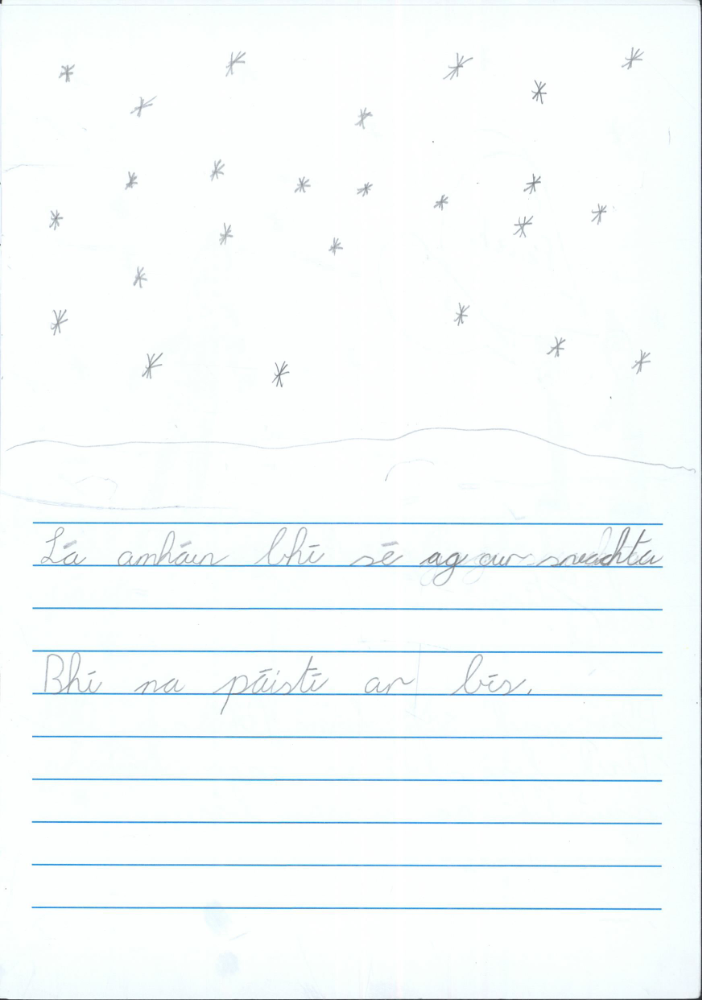 Lá amháin bhí sé ag cur sneachta
Bhí na páistí ar bís.